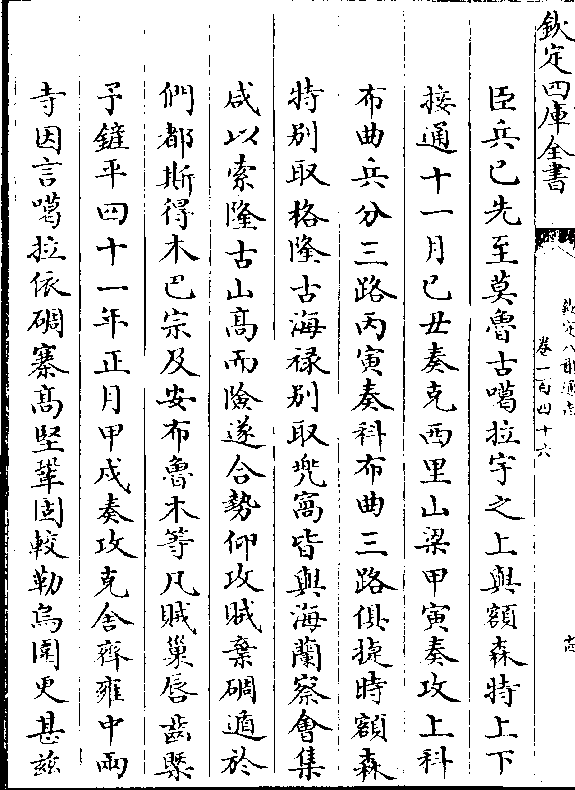 欽定四庫全書
欽定八旗通志
卷一百四十六
臣兵已先至莫魯古噶拉宇之上與額森特上下
接通十一月己丑奏克西里山梁甲寅奏攻上科
布曲兵分三路丙寅奏科布曲三路俱捷時額森
特别取格隆古海禄别取兜窩皆與海蘭察會集
咸以索隆古山髙而險遂合勢仰攻賊棄碉遁於
們都斯得木巴宗及安布魯木等凡賊巢唇齒槩
予鏟平四十一年正月甲戌奏攻克舍齊雍中兩
寺因言噶拉依碉寨髙堅鞏固較勒烏圍更甚兹